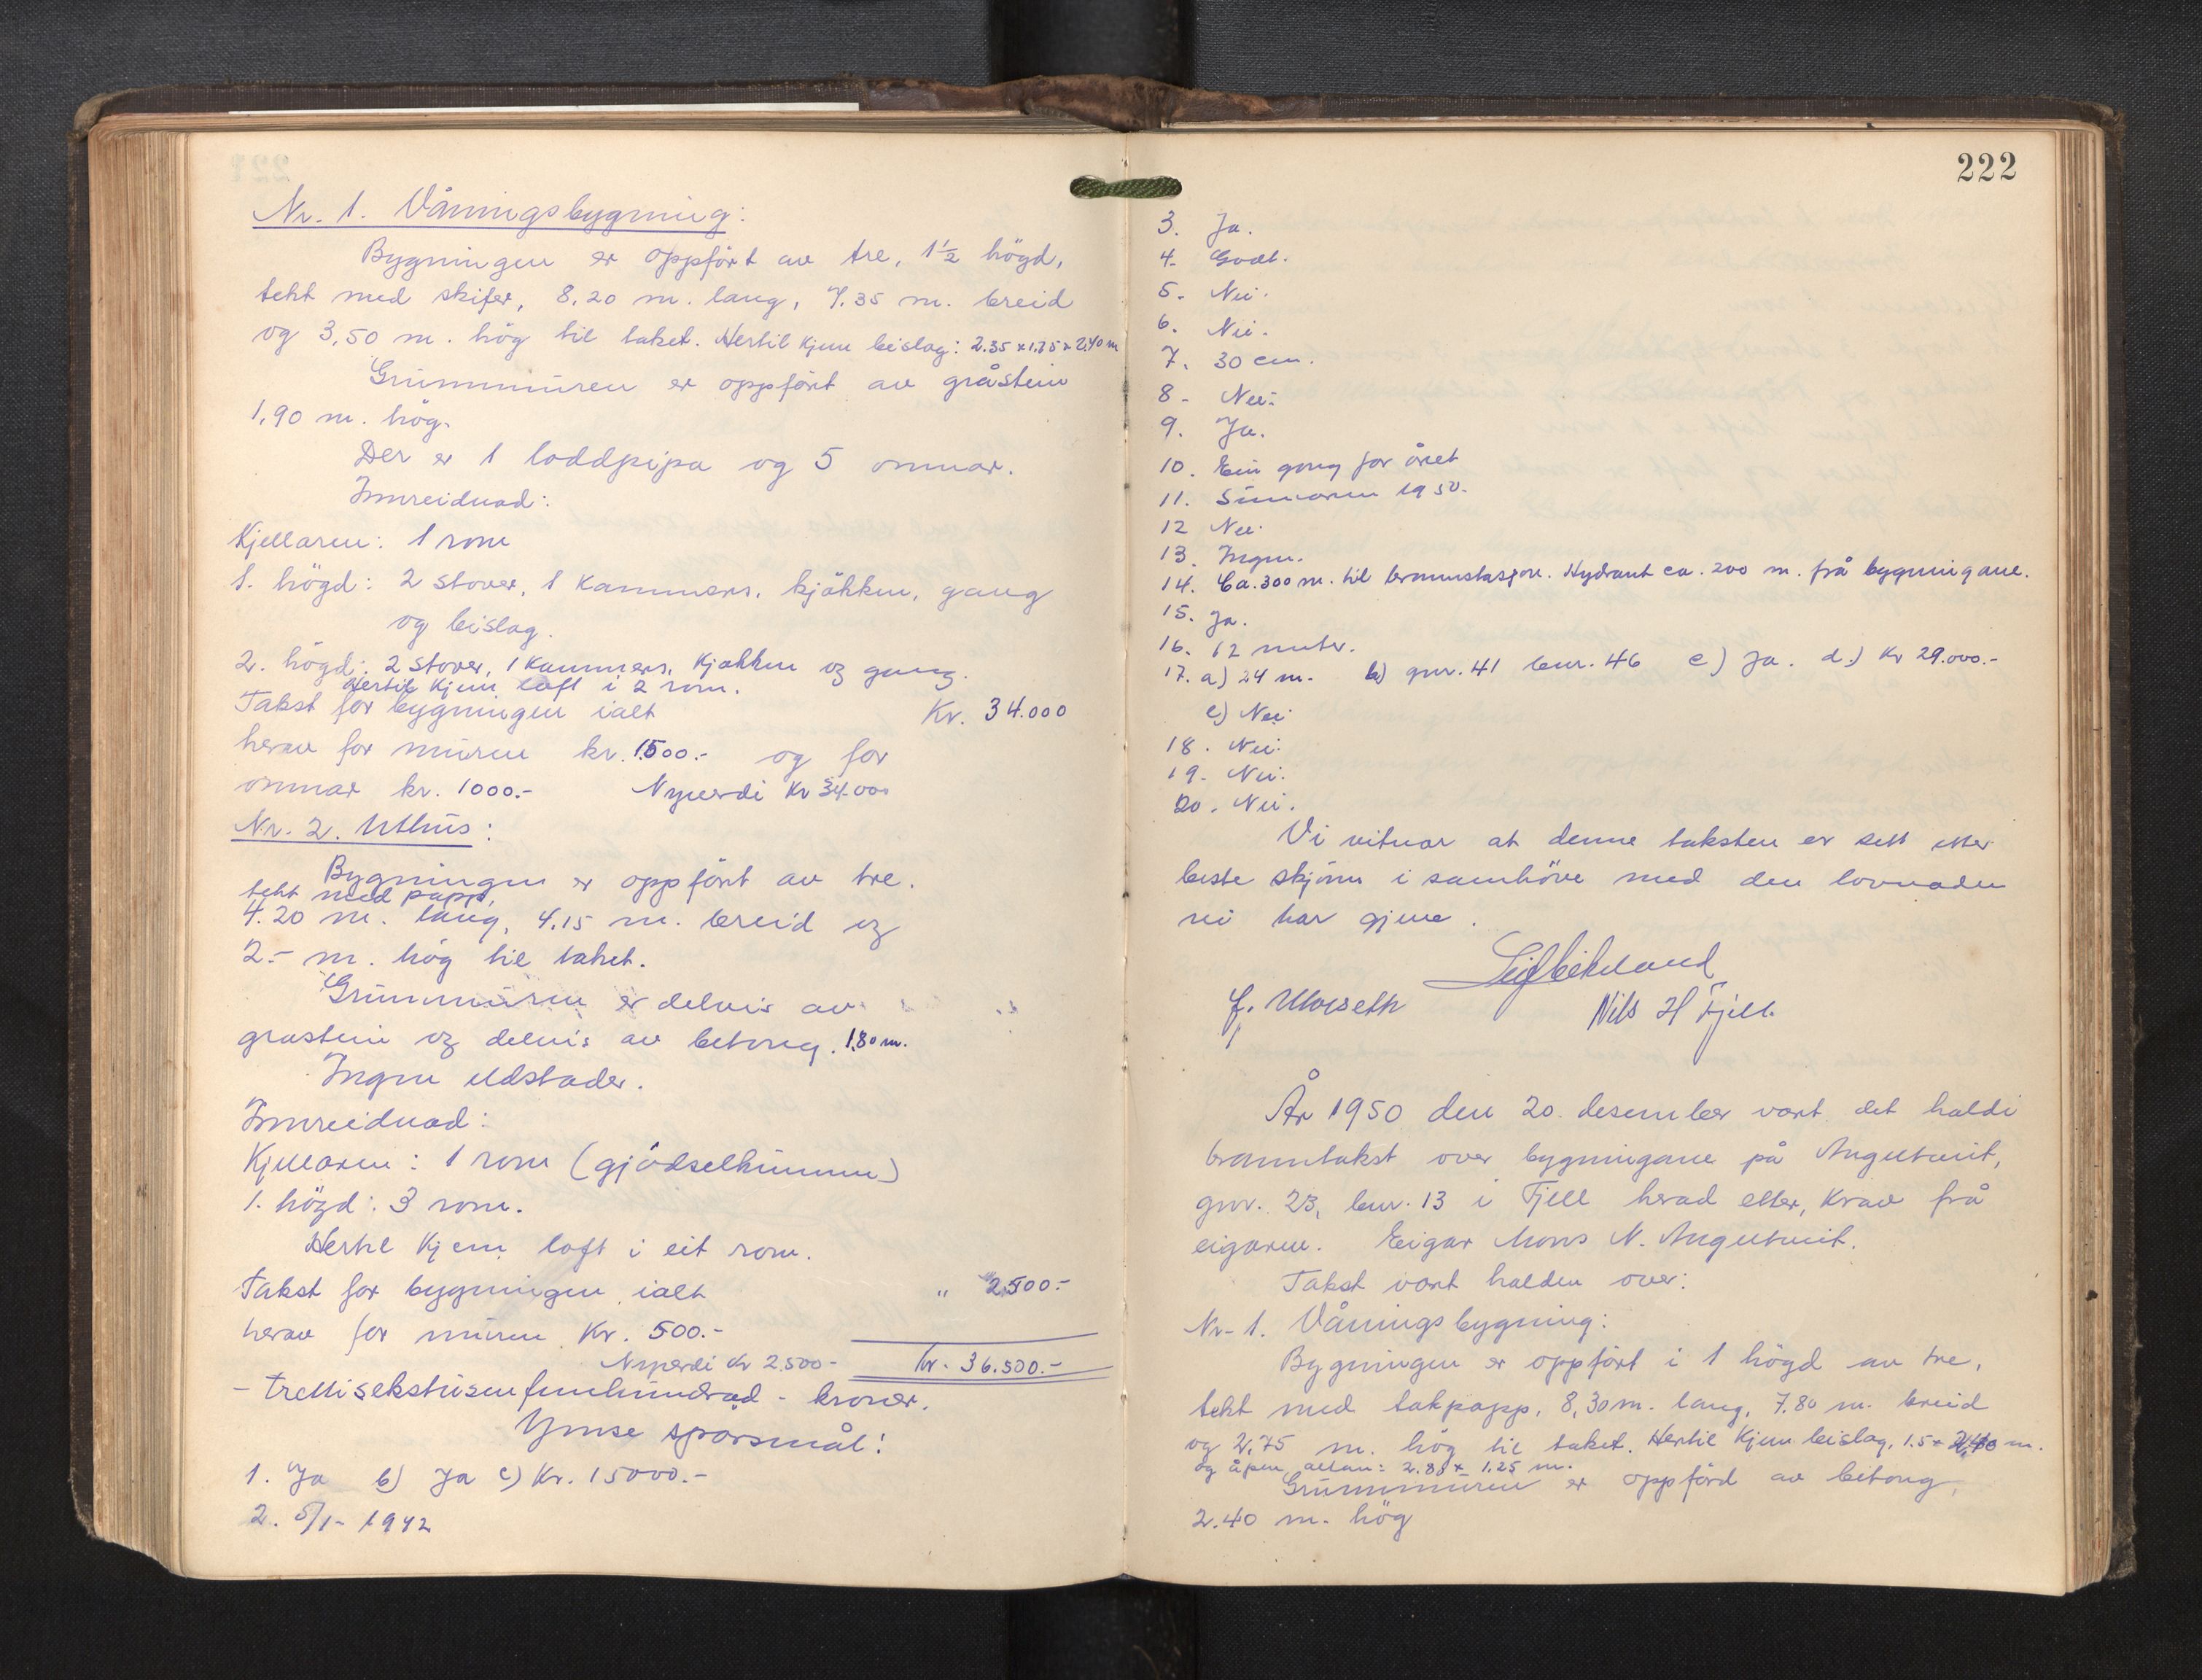 Nr. 1. Våningsbygning:
Bygningen er oppført av tre, 1½ högd,
tekt med skifer, 8,20 m. lang, 7.35 m. breid
og 3,50 m. hög til taket. Hertil kjem beislag: 2.35 x 1.35 x 2.40 m
Grunnmuren er oppført av gråstein
1,90 m. hög.
Der er 1 loddpipa og 5 omnar.
Innreidnad:
Kjellaren: 1 rom
1. högd: 2 stover, 1 kammers, kjökken, gang
og beislag.
2. högd: 2 stover, 1 kammers, kjökken og gang.
Hertil kjem loft i 2 rom.
Takst for bygningen ialt Kr. 34.000
herav for muren kr. 1500.- og for
omnar kr. 1000.- Nyverdi Kr 34.000
Nr. 2. Uthus:
Bygningen er oppført av tre.
tekt med papp,
4.20 m. lang, 4,15 m. breid og
2.- m. hög til taket.
Grunnmuren er delvis av
grastein og delvis av betong. 1.80 m.
Ingen eldstader.
Innreidnad:
Kjellaren: 1 rom (gjödselkummen)
1. högd: 3 rom.
Hertil kjem loft i eit rom.
Takst for bygningen ialt " 2.500.-
herav for muren Kr. 500.-
Nyverdi Kr 2.500- kr. 36.500.-
- trettisekstusenfemhundrad - kroner.
Ymse spørsmål:
1. Ja b) Ja c) Kr. 15000.-
2. 5/1- 1942
222
3. Ja.
4. Godt.
5. Nei.
6. Nei.
7. 30 cm.
8. Nei.
9. Ja.
10. Ein gong for året
11. Sumaren 1950.
12 Nei.
13. Ingen.
14. Ca. 300 m. til brannstasjon. Hydrant ca. 200 m. frå bygningane.
15. Ja.
16. 12 meter.
17. a) 24 m. b) gnr. 41 bnr. 46 c) Ja. d.) Kr 29.000.-
e) Nei
18. Nei.
19. Nei.
20. Nei.
Vi vitnar at denne taksten er sett etter
beste skjönn i samhöve med den lovnaden
vi har gjeve.
Leif Eikeland
Nils H Fjell.
År 1950 den 20. desember vart det haldi
branntakst over bygningane på Angeltveit,
gnr. 23, bnr. 13 i Fjell herad etter krav frå
eigaren. Eigar Mons N. Angeltveit.
Takst vart halden over:
Nr. 1. Våningsbygning:
Bygningen er oppført i 1 högd av tre,
tekt med takpapp, 8,30 m. lang, 7.80 m. breid
og 2,75 m. hög til taket. Hertil kjem beislag, 1.5 x m.
og åpen altan: 2.80 x 1.25 m.
Grunnmuren er oppförd av betong,
2.40 m. hög